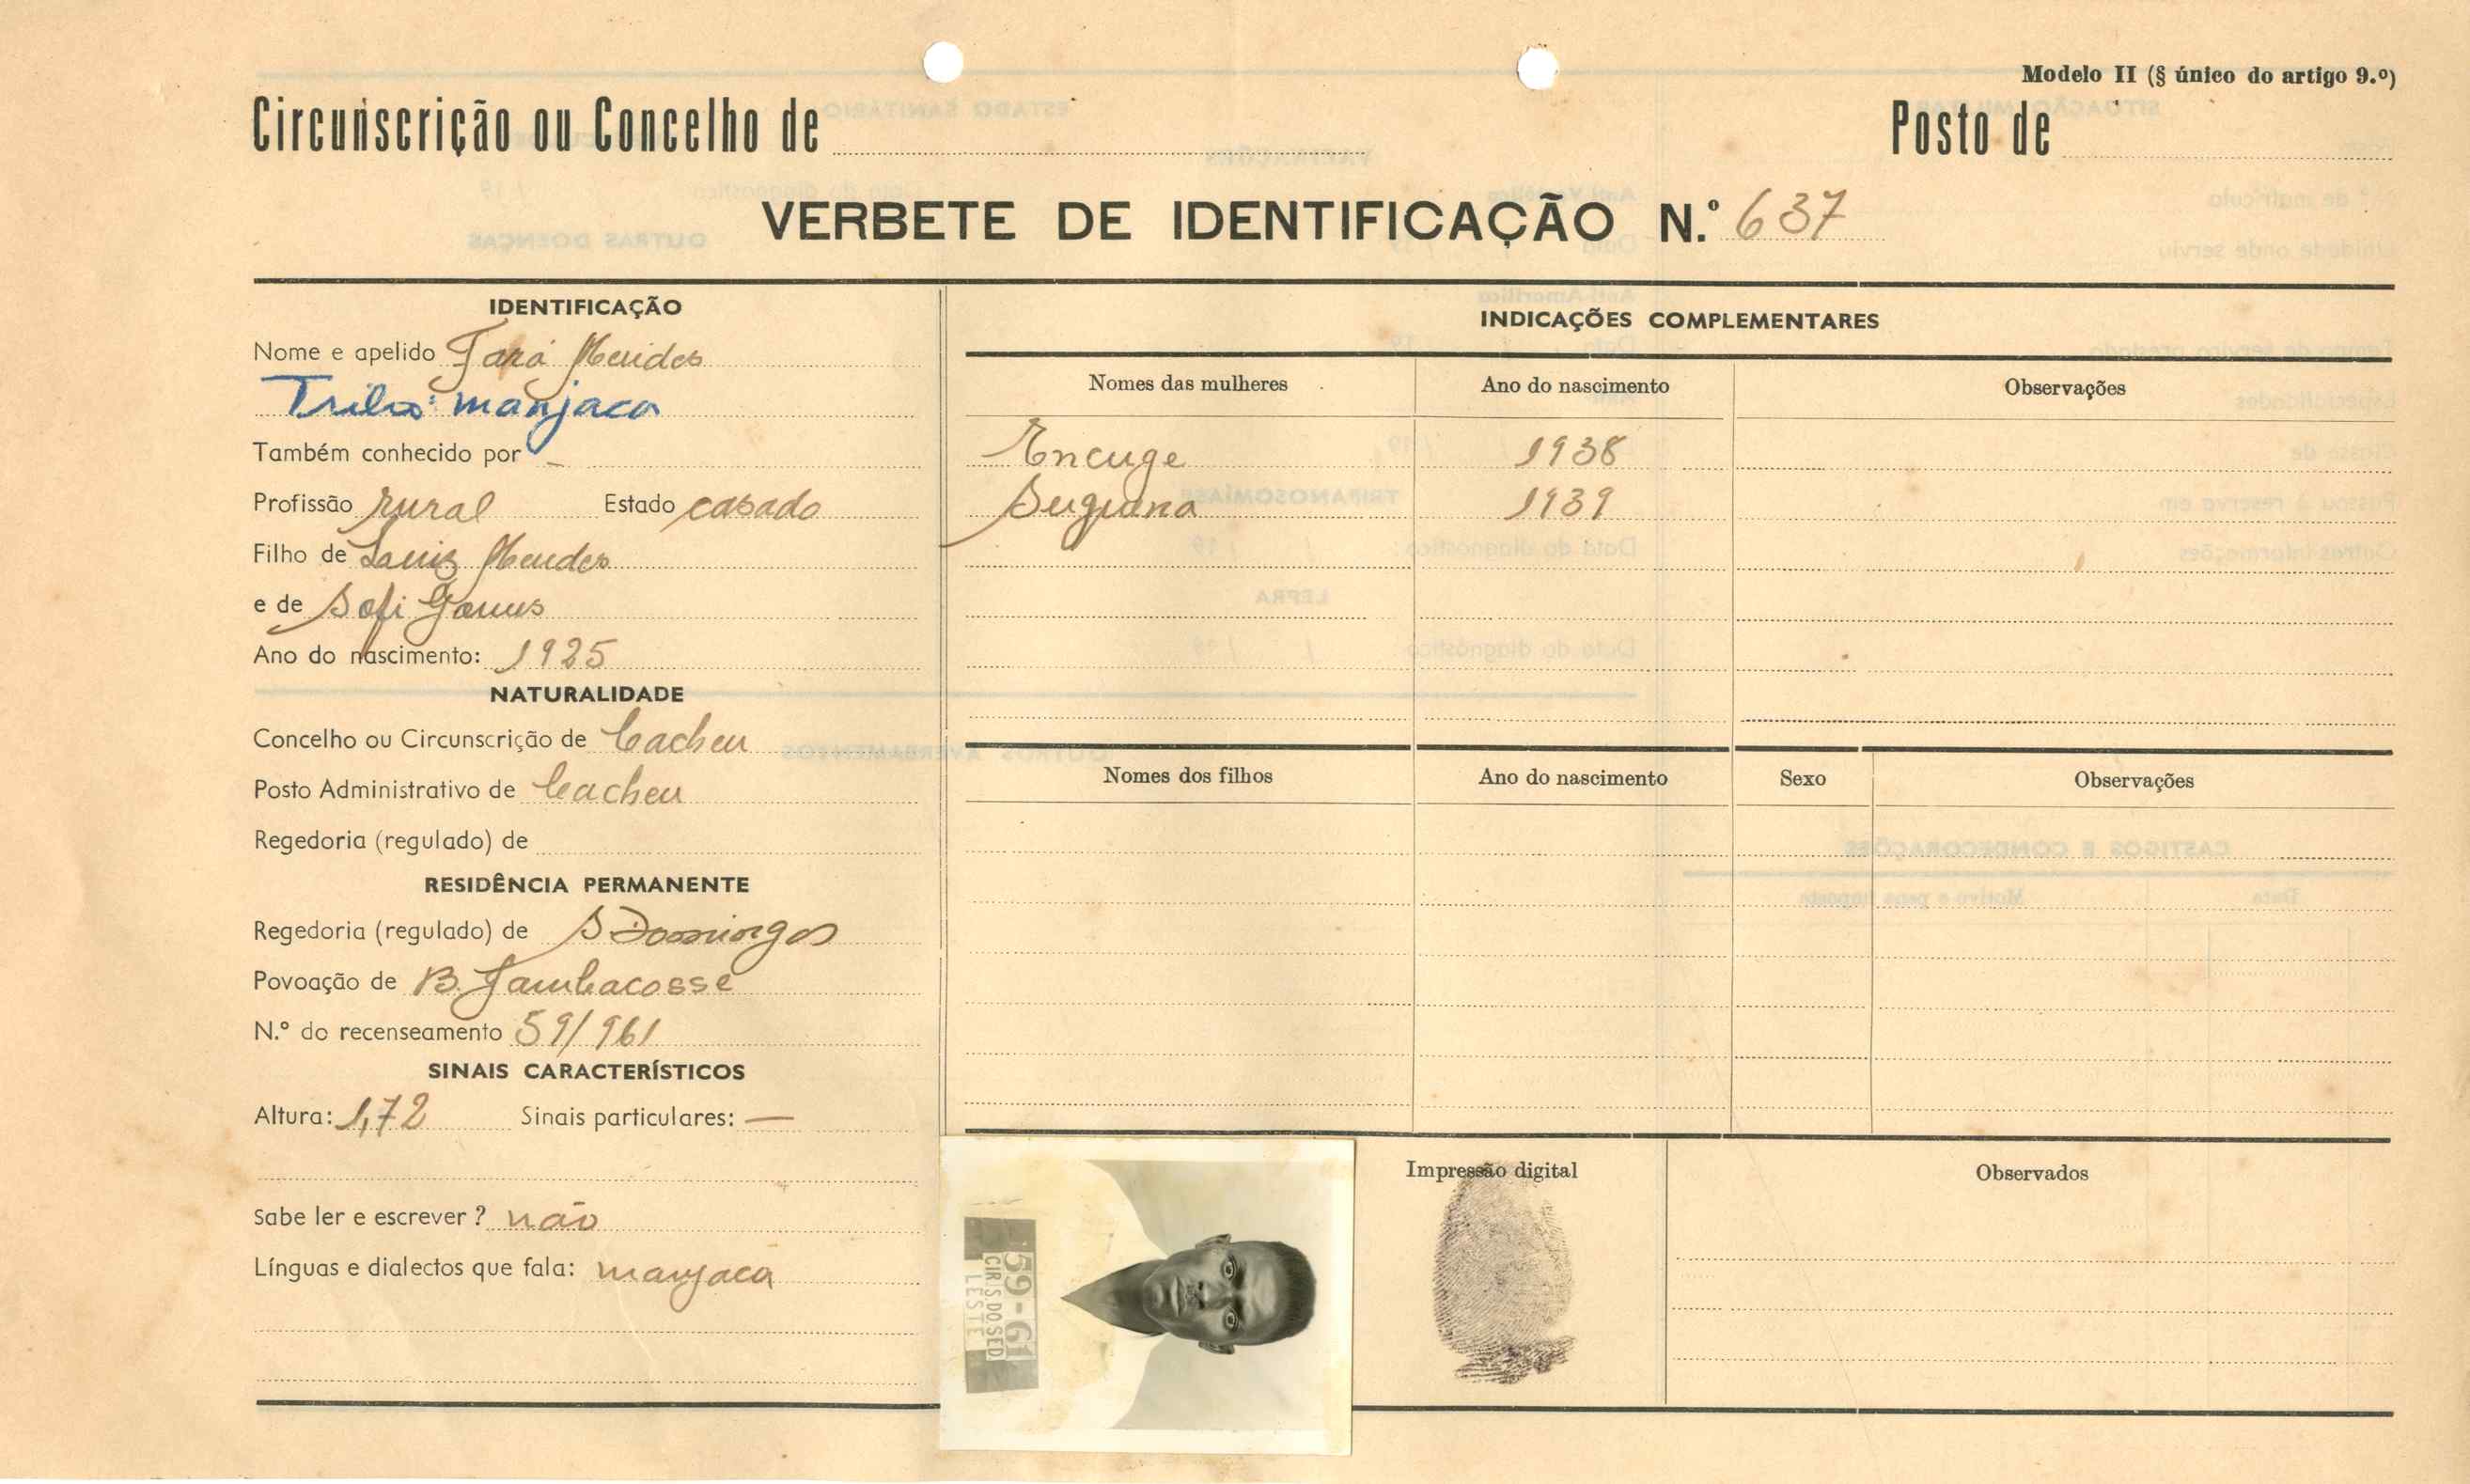 Modelo II (§ único do artigo 9.º)
Circunscrição ou Concelho de
Posto de
VERBETE DE IDENTIFICAÇÃO N.º 637
IDENTIFICAÇÃO
Nome e apelido Mendes
Tribo: manjaca
Também conhecido por –
Profissão rural Estado casado
Filho de Luiz Mendes
e de Sofi Gomes
Ano do nascimento: 1925
NATURALIDADE
Concelho ou Circunscrição de Cacheu
Posto Administrativo de Cacheu
Regedoria (regulado) de
RESIDÊNCIA PERMANENTE
Regedoria (regulado) de S Domingos
Povoação de B.
N.º do recenseamento 59/961
SINAIS CARACTERÍSTICOS
Altura: 1,72 Sinais particulares: —
Sabe ler e escrever? não
Línguas e dialectos que fala: manjaca
INDICAÇÕES COMPLEMENTARES
Nomes das mulheres Ano do nascimento Observações
Encuge 1938
1939
Nomes dos filhos Ano do nascimento Sexo Observações
59-61
CIR.S.DOS
LESTE
Impressão digital
Observados